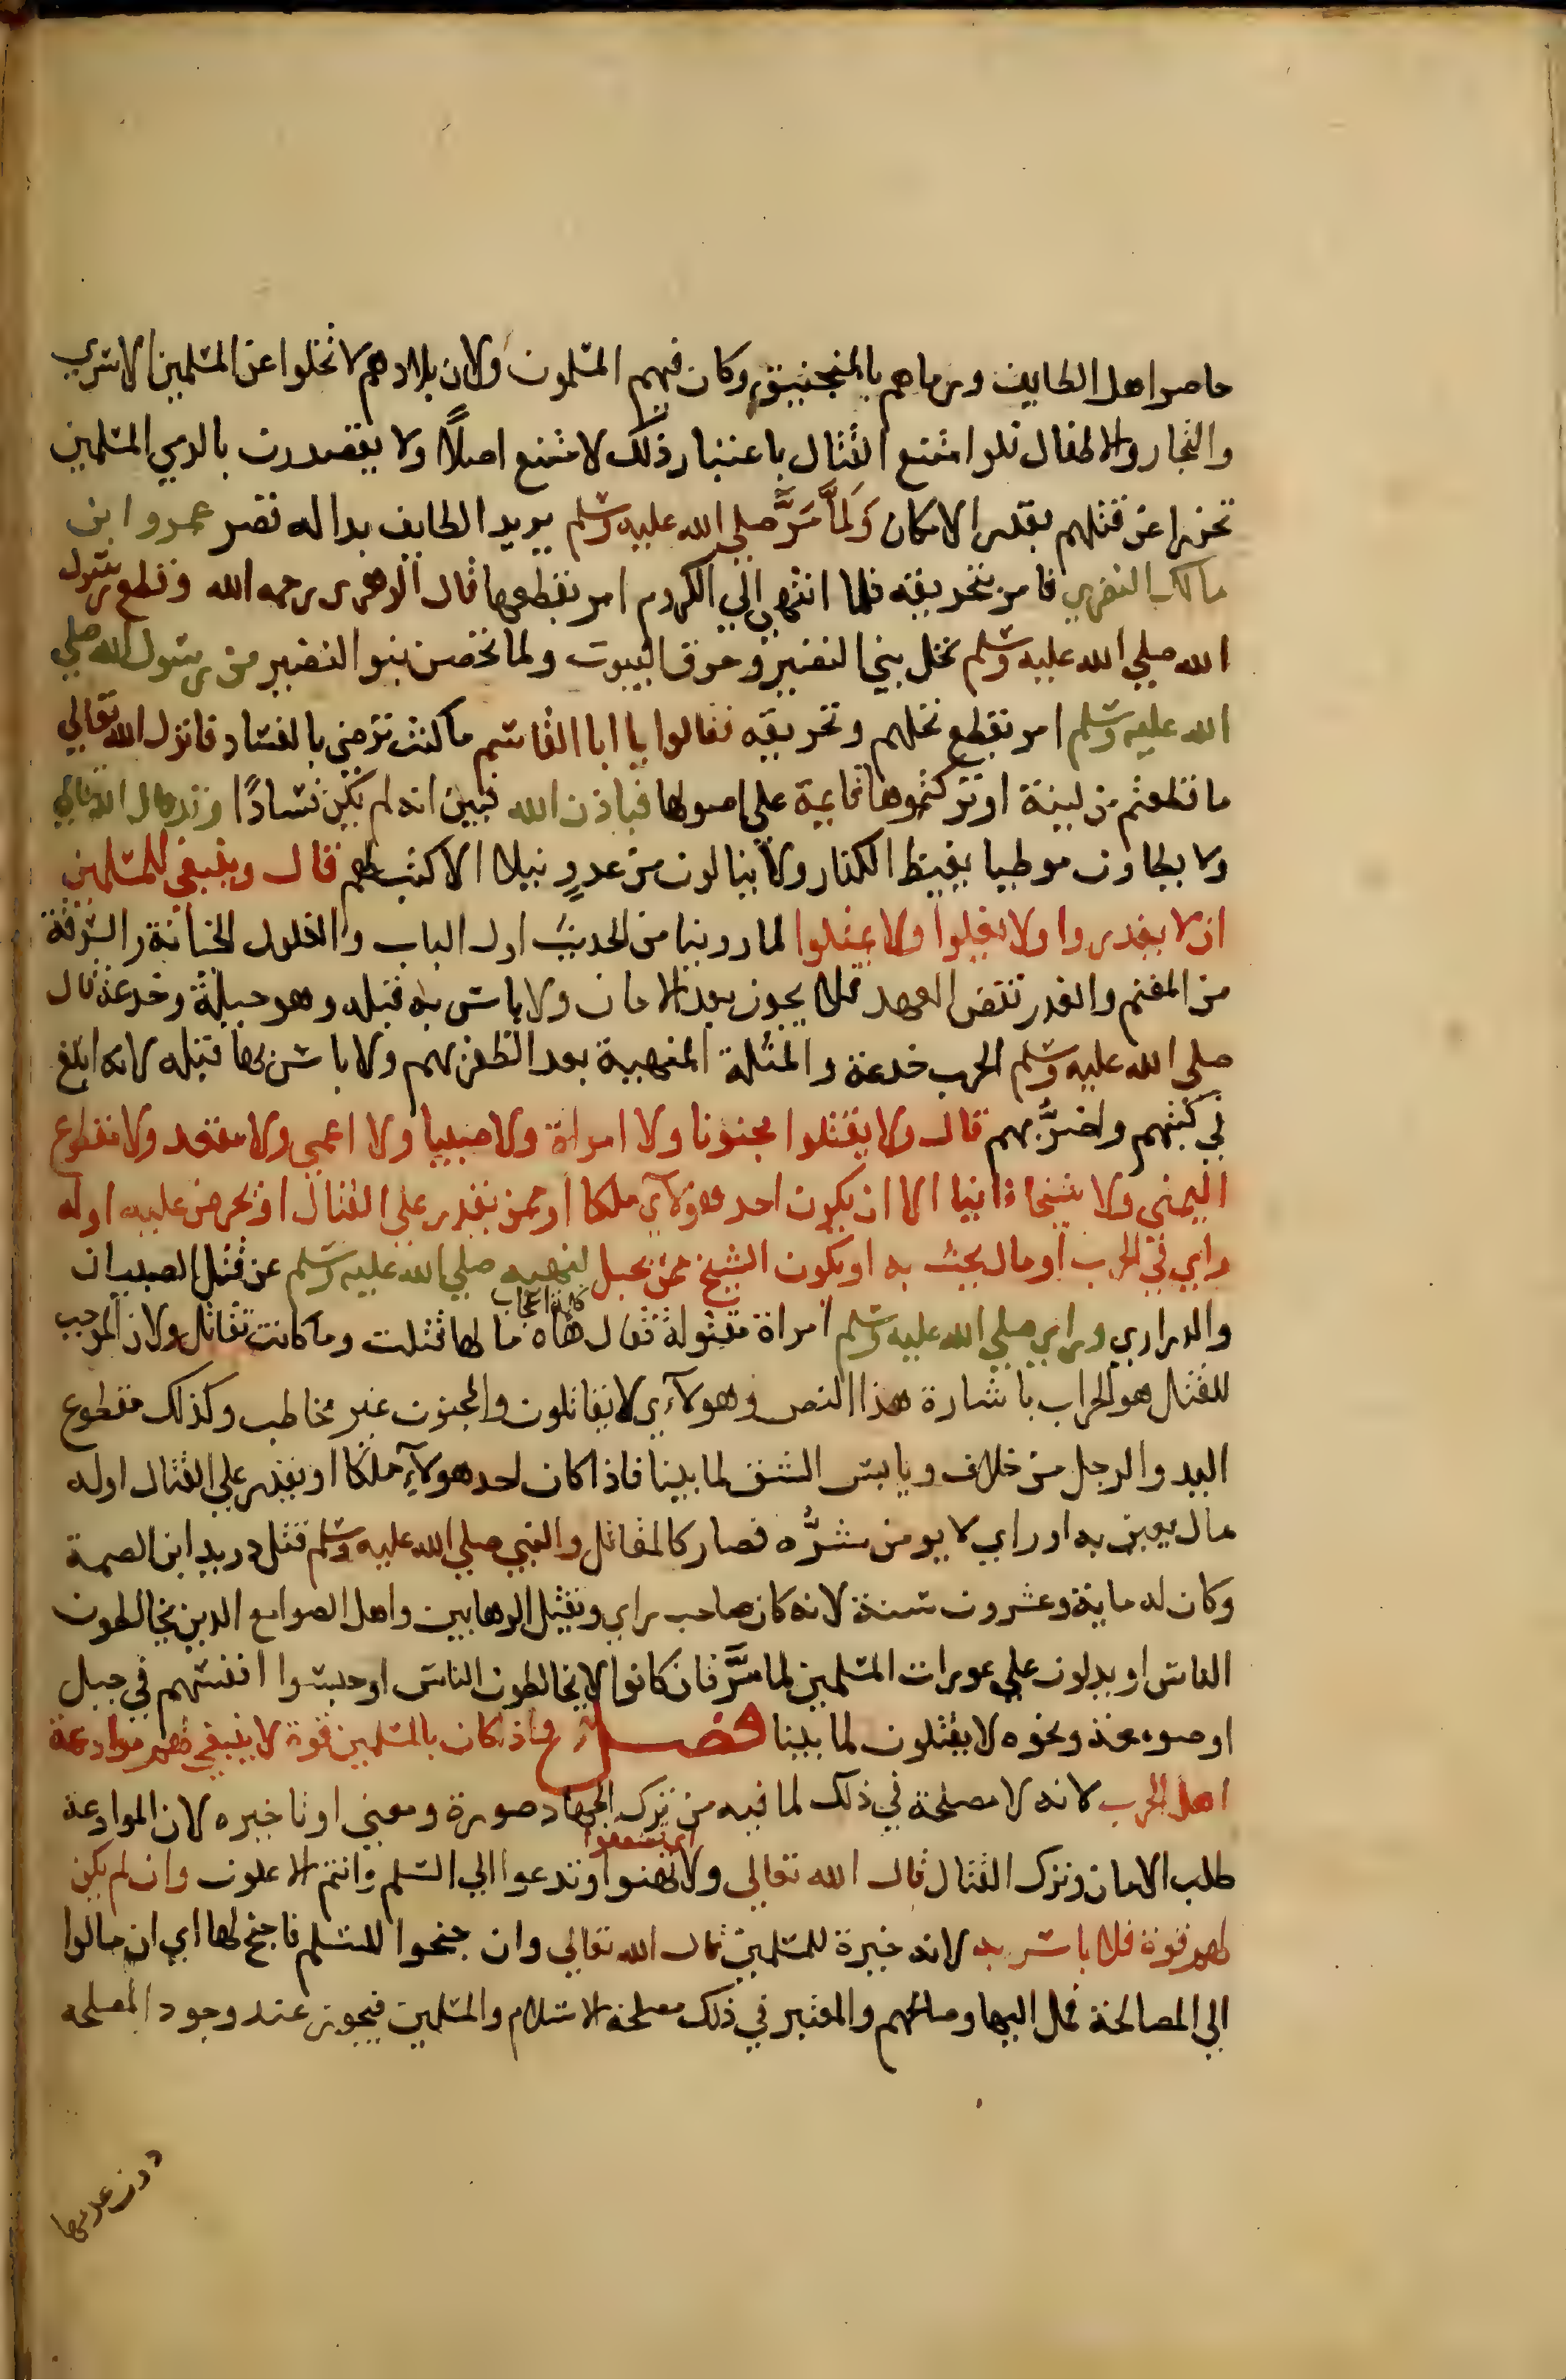 حاصر اهل الطايف ورماهم بالمنجنيق وكان فيهم المسلمون ولان بلادهم لا تخلوا عن المسلمين الاسري
والتجار والاطفال فلو امتنع القتال باعتبار ذلك لامتنع اصلًا ولا يقصدون بالرمي المسلمين
تحرزا عن قتلهم بقدر الامكان وَلَمَّا مَرَّ صلي الله عليه وسلم يريد الطايف بداله قصر عمرو ابن
مالك النضري فامر بتحريقه فلما انتهي الي الكروم امر بقطعها قال الزهري رحمه الله وقطع رسول
الله صلي الله عليه وسلم نخل بني النضير وحرق البيوت ولما تحصن بنو النضير من رسول الله صلي
الله عليه وسلم امر بقطع نخلهم وتحريقه فقالوا يا ابا القاسم ما كنت ترضي بالفساد فانزل الله تعالي
ما قطعتم من لينة او تركتموها قايمة علي اصولها فباذن الله فبين انه لم يكن فسادًا وقد قال الله تعالي
ولا يطاون موطيا يغيظ الكفار ولا ينالون من عدوٍ نيلا الا كتب لهم قال وينبغي للمسلمين
ان لا يغدروا ولا يغلوا ولا يمثلوا لما روينا من الحديث اول الباب والغلول الخيانة والسرقة
من المغنم والغدر نقض العهد فلا يجوز بعد الامان ولا باس به قبله وهو حيلة وخدعة قال
صلي الله عليه وسلم الحرب خدعة والمثلة المنهية بعد الظفر بهم ولا باس بها قبله لانه ابلغ
في كبتهم واضرُّ بهم قال ولا يقتلوا مجنونا ولا امراة ولا صبيا ولا اعمي ولا مقعد ولا مقطوع
اليمني ولا شيخا فانيا الا ان يكون احد هولآي ملكا او ممن يقدر علي القتال او يحرض عليه اوله
راي في الحرب او مال يحث به او يكون الشيخ ممن يحبل لنهيه صلي الله عليه وسلم عن قتل الصبيان
كلمة اعجاب
والدراري وراي صلي الله عليه وسلم امراة مقتولة فقال هاه ما لها قتلت وما كانت تقاتل ولان الموجب
للقتال هو الحراب باشارة هذا النص وهولآءي لا يقاتلون والمجنون غير مخاطب وكذلك مقطوع
اليد والرجل من خلاف ويابس الشق لما بينا فاذا كان احد هولآءِ ملكا او يقدر علي القتال اوله
مال يعين به او راي لا يومن شرُّه فصار كالمقاتل والنبي صلي الله عليه وسلم قتل دريد ابن الصمة
وكان له ماية وعشرون سنة لانه كان صاحب راي ويقتل الرهابين واهل الصوامع الدين يخالطون
الناس او يدلون علي عورات المسلمين لما مَرَّ فان كانوا لا يخالطون الناس او حبسوا انفسهم في جبل
او صومعة ونحوه لا يقتلون لما بينا فصل واذا كان بالمسلمين قوة لا ينبغي لهم موادعة
اهل الحرب لانه لا مصلحة في ذلك لما فيه من ترك الجهاد صورة ومعني او تاخيره لان الموادعة
اي تضعفوا
طلب الامان وترك القتال قال الله تعالي ولا تهنوا وتدعوا الي السلم وانتم الاعلون وان لم يكن
لهم قوة فلا باس به لانه خيرة للمسلمين قال الله تعالي وان جنحوا للسلم فاجنح لها اي ان مالوا
الي المصالحة فمل اليها وصالحهم والمعتبر في ذلك مصلحة الاسلام والمسلمين فيجوز عند وجود المصلحه
دون عدمها